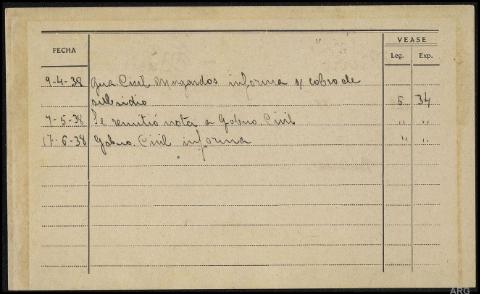 VEASE
FECHA Leg. Exp.
9-4-38 Guª Civil Mozardos informa s/ cobro de
subsidio 5 34
7-5-38 Se remitió nota a Gobno. Civil " "
17-6-38 Gobno. Civil informa " "
ARG